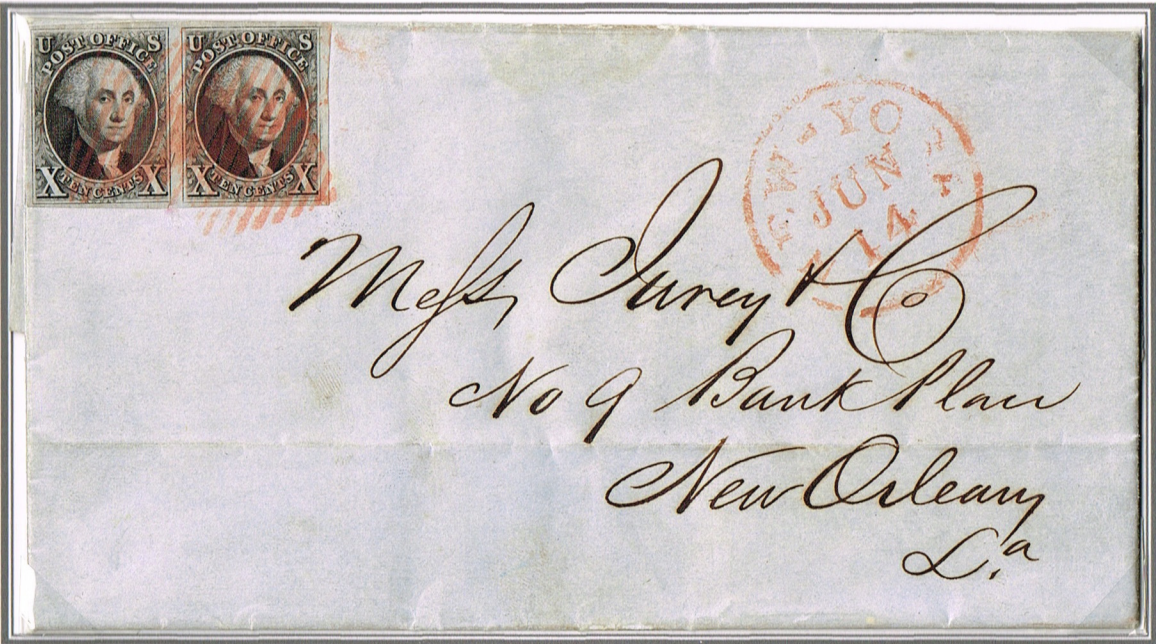 U POST OFFICE S
X TEN CENTS X
U POST OFFICE S
X TEN CENTS X
EW-YO
JUN
14
Mess, Jurey & Co
No 9 Bank Place
New Orleans
La